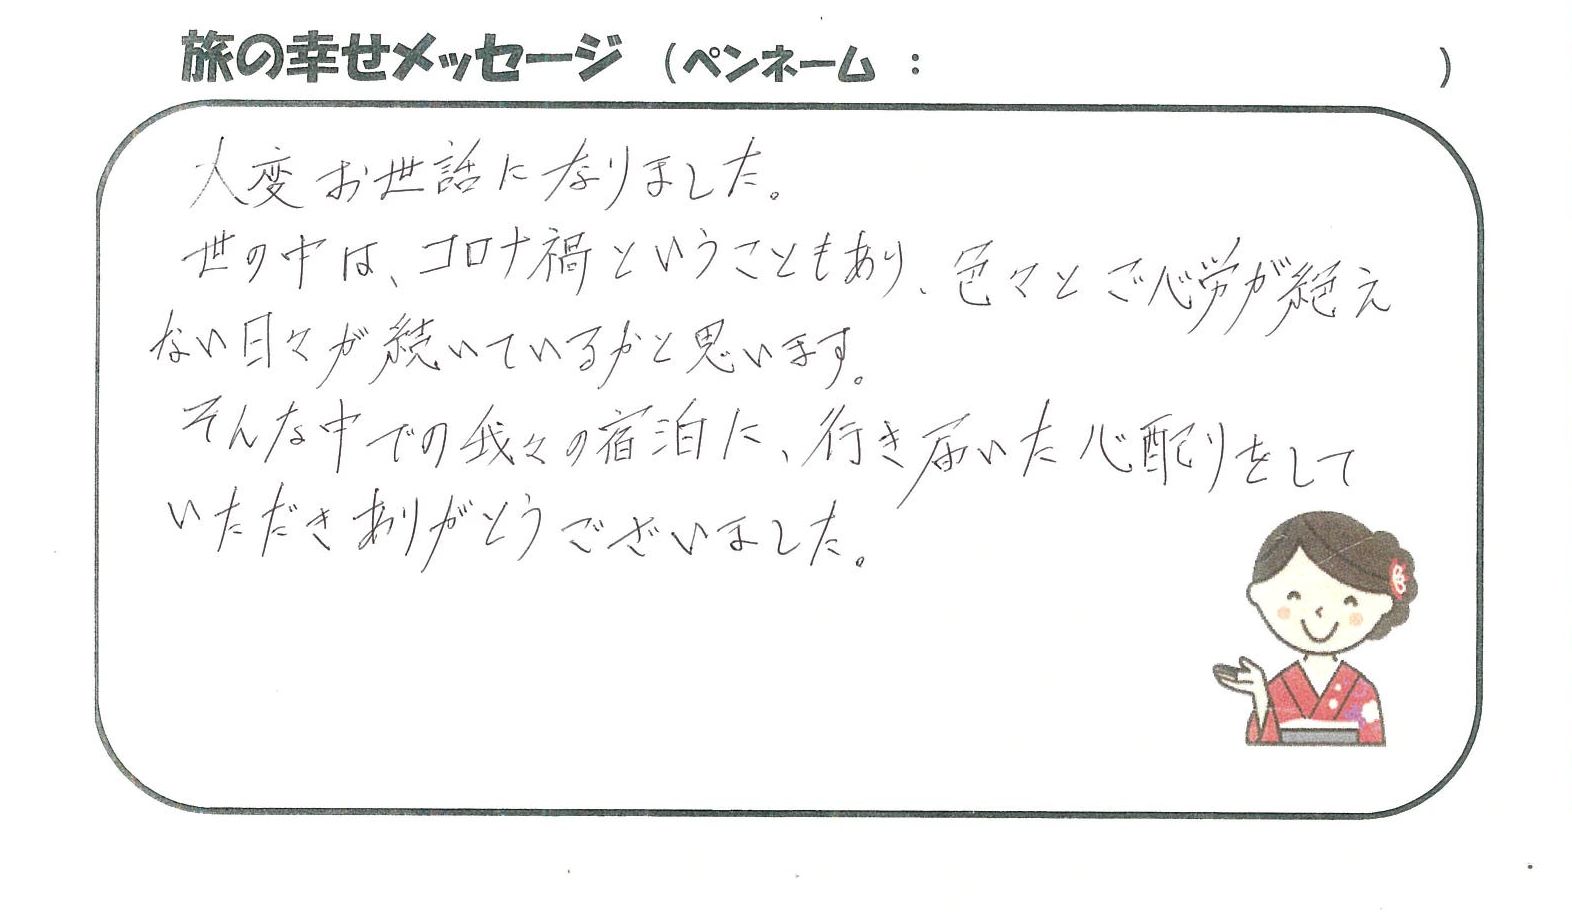 旅の幸せメッセージ （ペンネーム ： ）
大変お世話になりました。
世の中は、コロナ禍ということもあり、色々とご心労が絶え
ない日々が続いているかと思います。
そんな中での我々の宿泊に、行き届いた心配りをして
いただきありがとうございました。